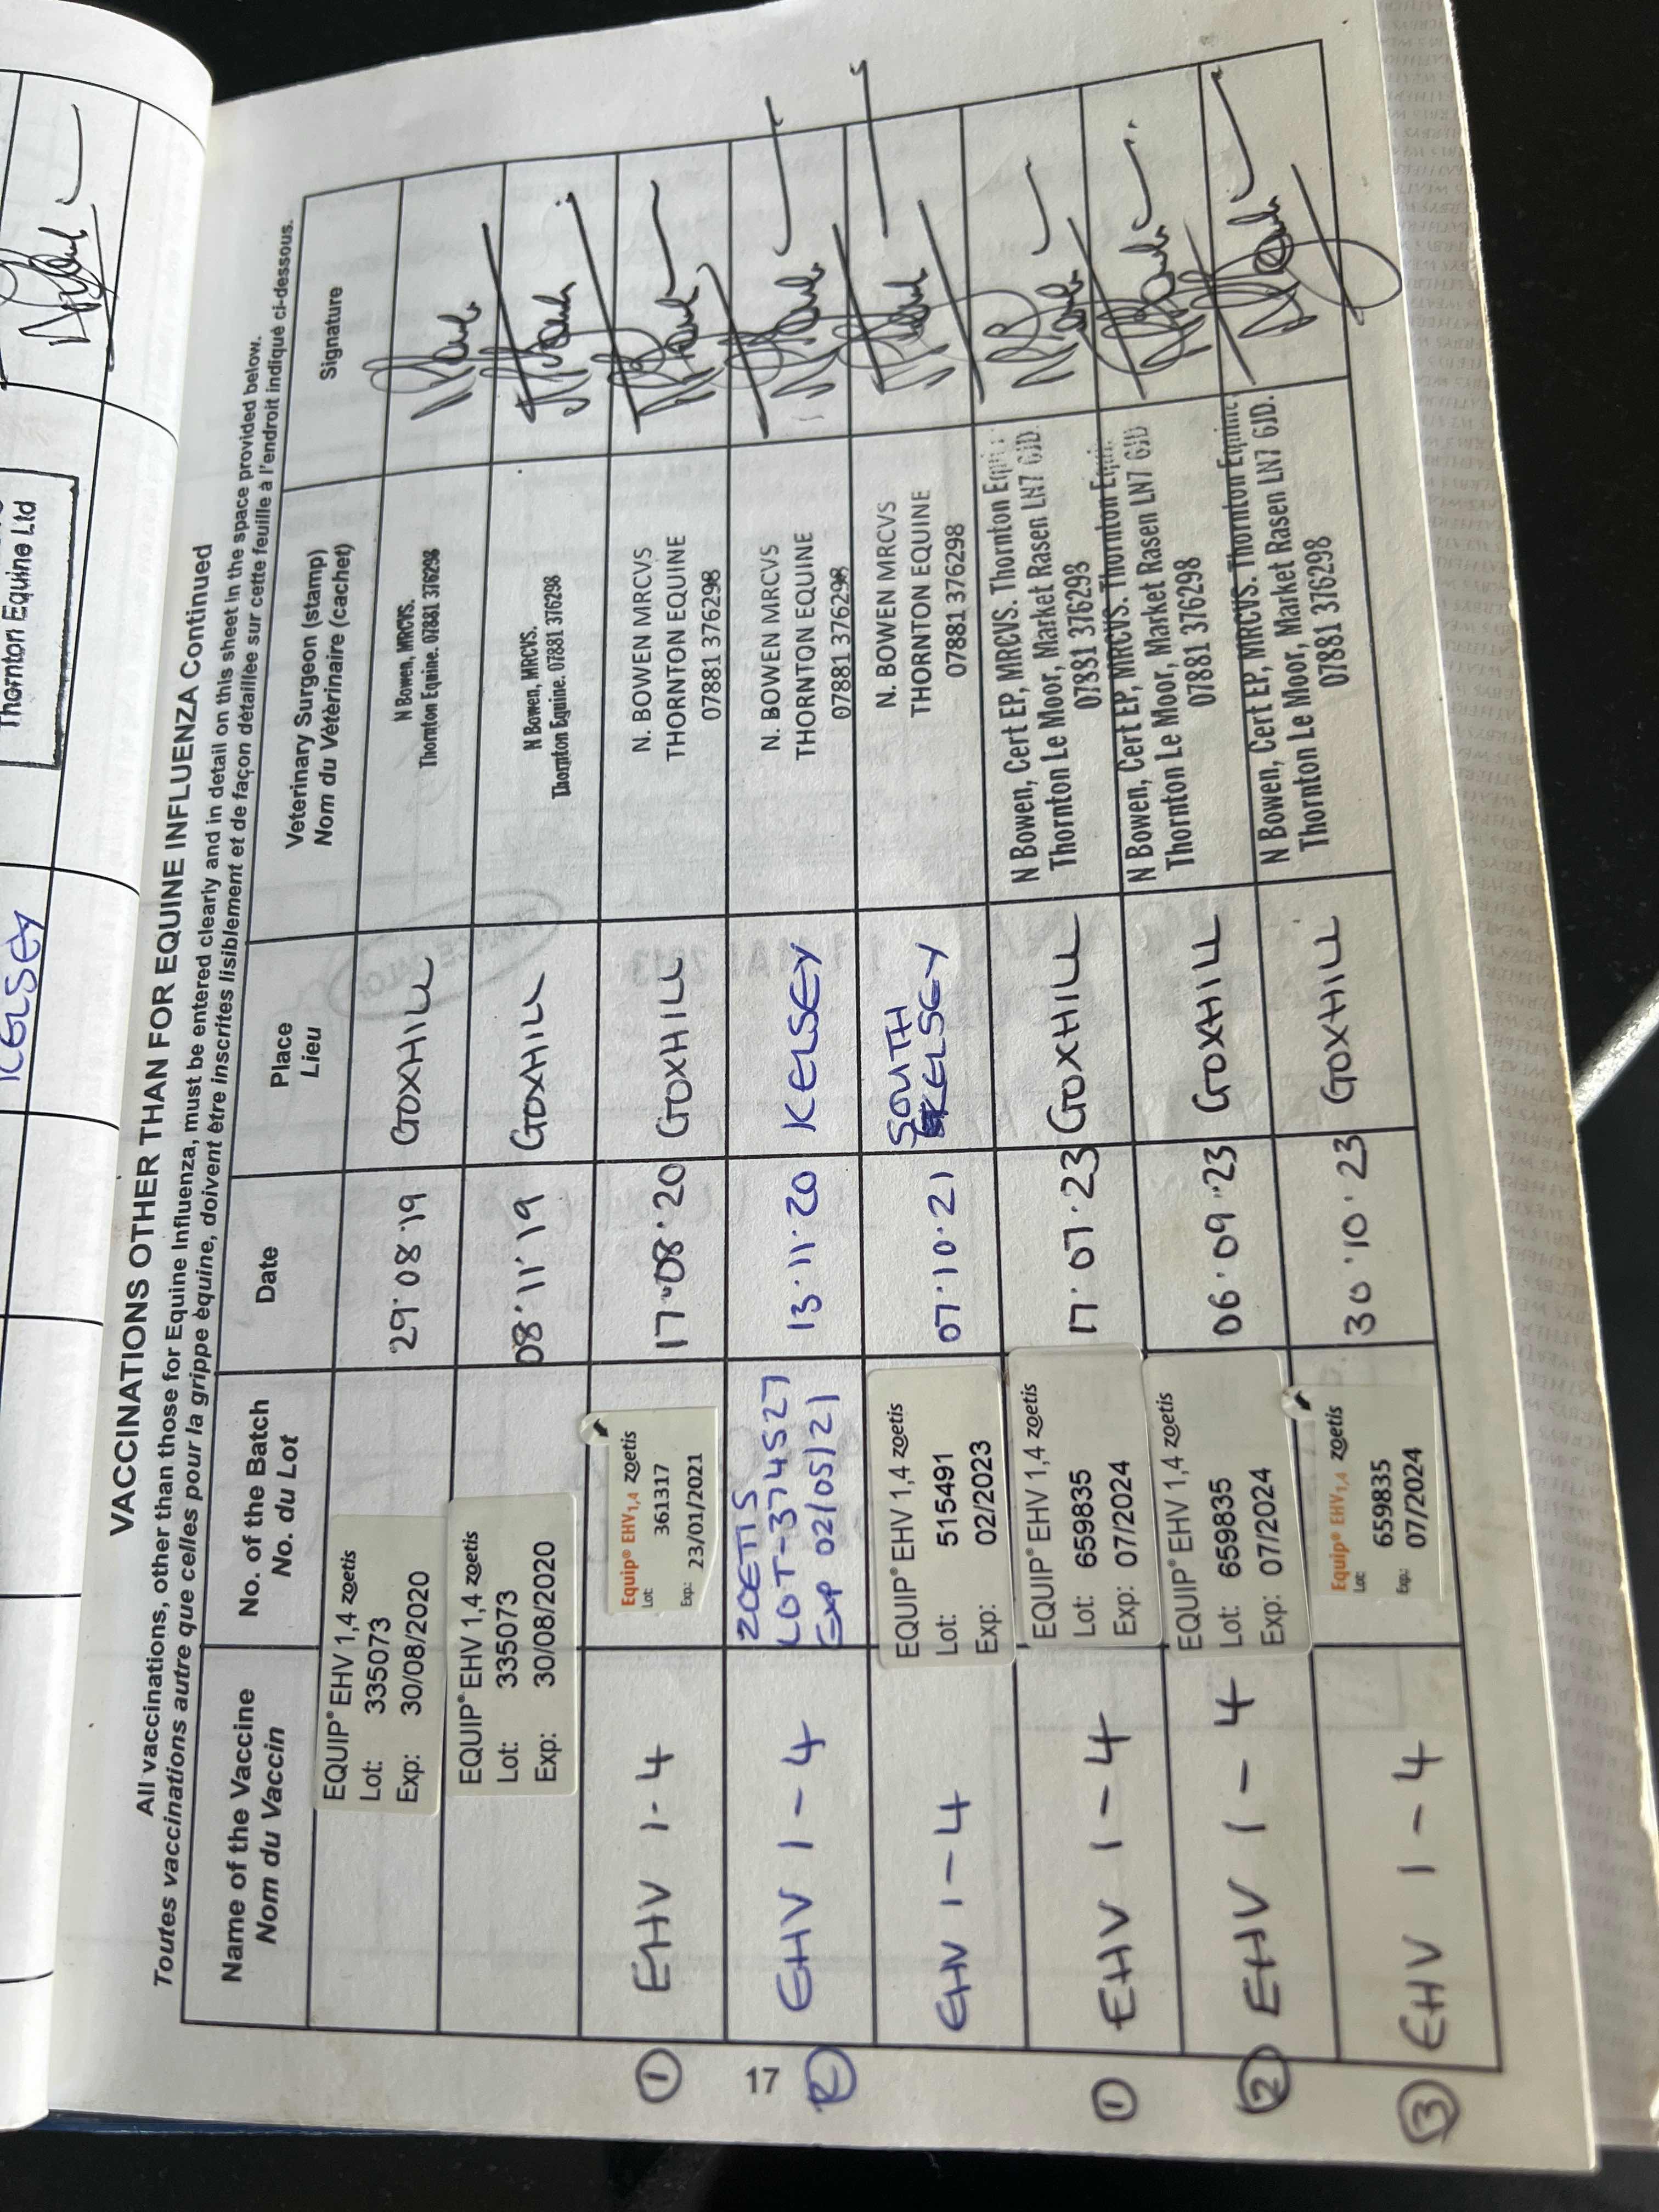 Thornton Equine Ltd
KELSEY
VACCINATIONS OTHER THAN FOR EQUINE INFLUENZA Continued
All vaccinations, other than those for Equine Influenza, must be entered clearly and in detail on this sheet in the space provided below.
Toutes vaccinations autre que celles pour la grippe équine, doivent être inscrites lisiblement et de façon détaillée sur cette feuille à l'endroit indiqué ci-dessous.
Name of the Vaccine
Nom du Vaccin
No. of the Batch
No. du Lot
Date
Place
Lieu
Veterinary Surgeon (stamp)
Nom du Vétérinaire (cachet)
Signature
EQUIP® EHV 1,4 zoetis
Lot: 335073
Exp: 30/08/2020
29·08·19
GOXHILL
N Bowen, MRCVS.
Thornton Equine. 07881 376298
EQUIP® EHV 1,4 zoetis
Lot: 335073
Exp: 30/08/2020
08·11·19
GOXHILL
N Bowen, MRCVS.
Thornton Equine. 07881 376298
1
EHV 1-4
Equip® EHV1,4 zoetis
Lot: 361317
Exp.: 23/01/2021
17·08·20
GOXHILL
N. BOWEN MRCVS
THORNTON EQUINE
07881 376298
17
2
EHV 1-4
ZOETIS
LOT-374527
Exp 02/05/21
13·11·20
KELSEY
N. BOWEN MRCVS
THORNTON EQUINE
07881 376298
EHV 1-4
EQUIP® EHV 1,4 zoetis
Lot: 515491
Exp: 02/2023
07·10·21
SOUTH
KELSEY
N. BOWEN MRCVS
THORNTON EQUINE
07881 376298
1
EHV 1-4
EQUIP® EHV 1,4 zoetis
Lot: 659835
Exp: 07/2024
17·07·23
GOXHILL
N Bowen, Cert EP, MRCVS. Thornton Equine
Thornton Le Moor, Market Rasen LN7 6JD.
07881 376298
2
EHV 1-4
EQUIP® EHV 1,4 zoetis
Lot: 659835
Exp: 07/2024
06·09·23
GOXHILL
N Bowen, Cert EP, MRCVS. Thornton Equine
Thornton Le Moor, Market Rasen LN7 6JD
07881 376298
3
EHV 1-4
Equip® EHV1,4 zoetis
Lot: 659835
Exp.: 07/2024
30·10·23
GOXHILL
N Bowen, Cert EP, MRCVS. Thornton Equine
Thornton Le Moor, Market Rasen LN7 6JD.
07881 376298